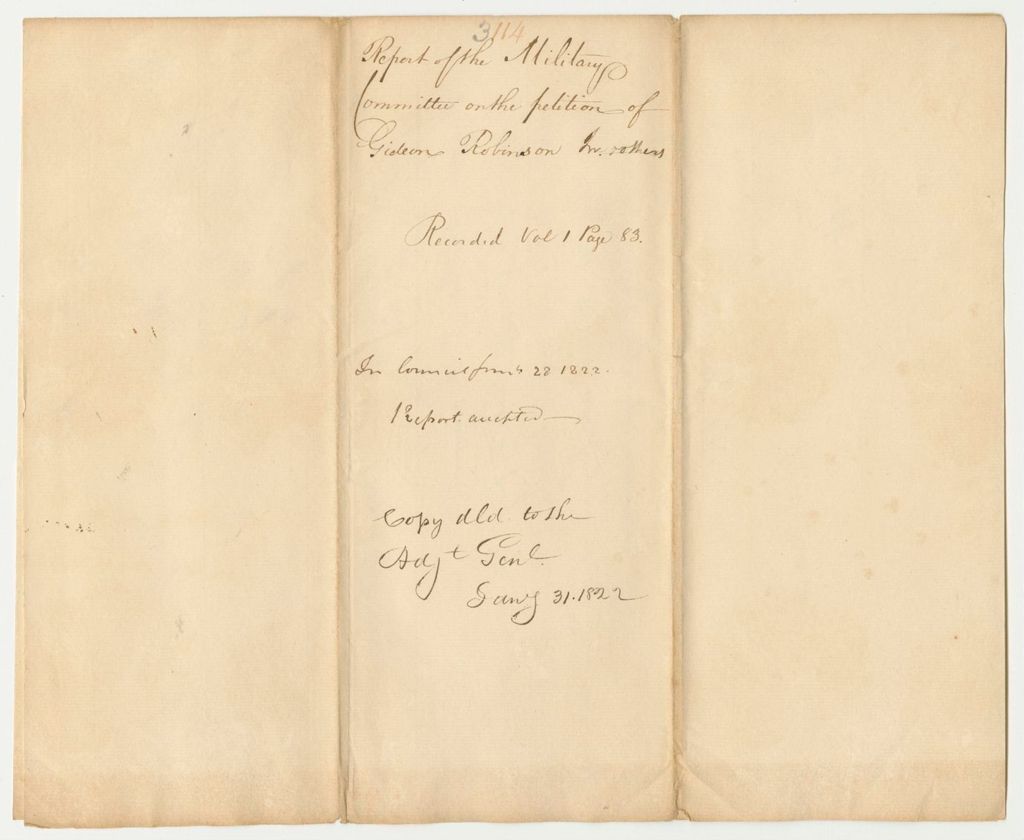 3114
Report of the Military
Committee on the petition of
Gideon Robinson Jr. & others
Recorded Vol 1 Page 83.
In Council 28 1822.
Report accepted
Copy dld to the
Adjt Genl.
Jany 31. 1822